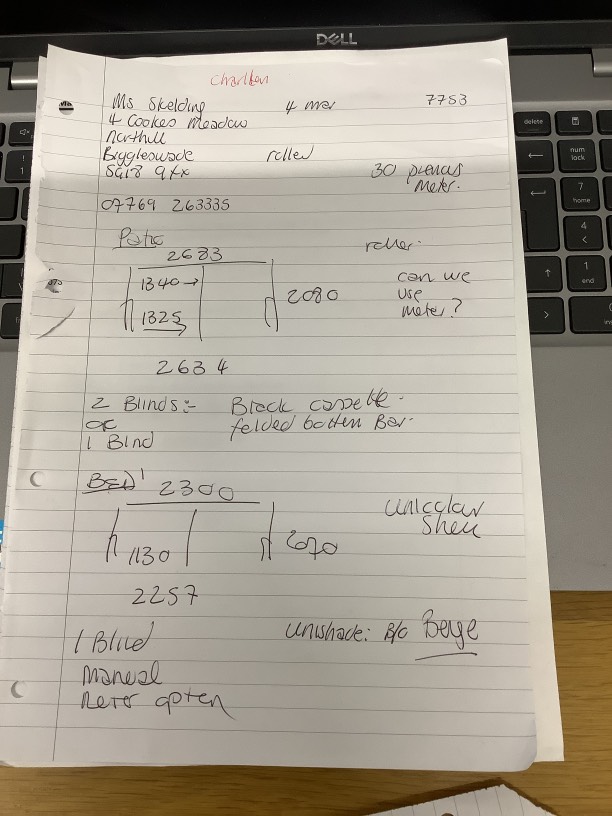 DELL
Charlton
Ms Skelding 4 Mar 7753
4 Cookes Meadow
Northill
Biggleswade roller
SG18 9
30 Meter.
07769 263335
Patio roller.
2683
1340 →
1325
2080
can we
use
meter?
2634
2 Blinds:- Black cassette.
or folded bottom Bar.
1 Blind
BED 1
2300
1130
2257
Unicolour
1 Blind Unishade: B/O Beige
Manual
delete
num
lock
7
home
4
1
end